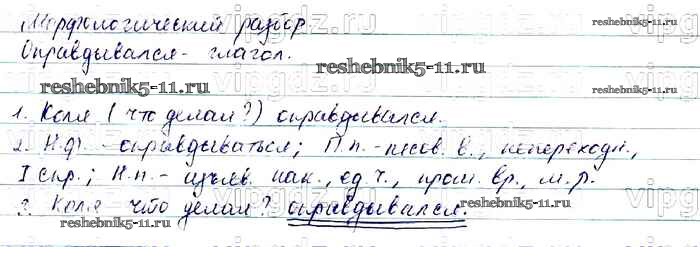 Морфологический разбор.
reshebnik5-11.ru
Оправдывался - глагол.
reshebnik5-11.ru
reshebnik5-11.ru
reshebnik5-11.ru
1. Коля (что делал?) оправдывался.
2. Н.ф. - оправдываться; П.п. - несов. в., непереходн.,
I спр.; Н.п. - изъяв. нак., ед. ч., прош. вр., м. р.
reshebnik5-11.ru
3. Коля что делал? оправдывался.
reshebnik5-11.ru
vipgdz.ru